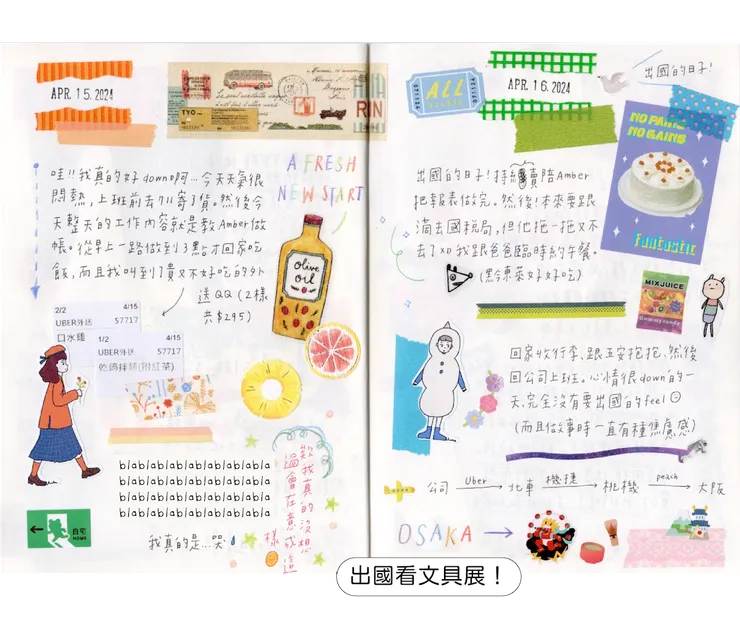 APR. 15. 2024
A FRESH
NEW START
哇!!我真的好down啊…今天天氣很
悶熱,上班前去7-11寄了貨。然後今
天整天的工作內容就是教Amber做
帳。從早上一路做到3點才回家吃
飯,而且我叫到了貴又不好吃的外
送QQ(2樣
共$295)
2/2 4/15
UBER外送 57717
口水雞
1/2 4/15
UBER外送 57717
乾鍋拌麵(附紅茶)
olive
oil
blablablablablablablabla
blablablablablablablabla
blablablablablablablabla
blablablablablablablabla
我真的是…哭
欸我真的沒想
過會在意成這
樣
自宅
HOME
ALL
APR. 16. 2024
出國的日子!
NO PAINS
NO GAINS
Fantastic
出國的日子!持續賣陪Amber
把報表做完。然後!本來要跟
滴去國稅局,但他拖一拖又不
去了XD我跟爸爸臨時約午餐。
(黔東菜好好吃)
MIXJUICE
Gummy candy
回家收行李、跟五安抱抱、然後
回公司上班。心情很down的一
天,完全沒有要出國的feel
(而且做事時一直有種焦慮感)
公司 Uber 北車 機捷 桃機 peach 大阪
OSAKA
出國看文具展!